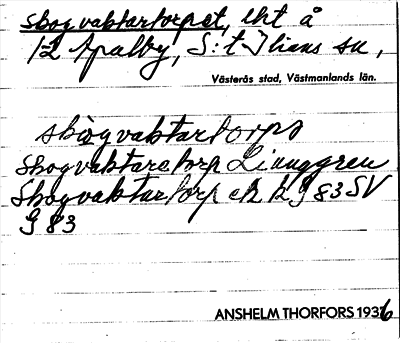 skogvaktartorpet, lht å
12 Apalby, S:t Ilians sn,
Västerås stad, Västmanlands län.
skogvaktartorps
Skogvaktaretorp Linnggren
Skogvaktartorp ek 12 G 83 SV
G 83
ANSHELM THORFORS 1936